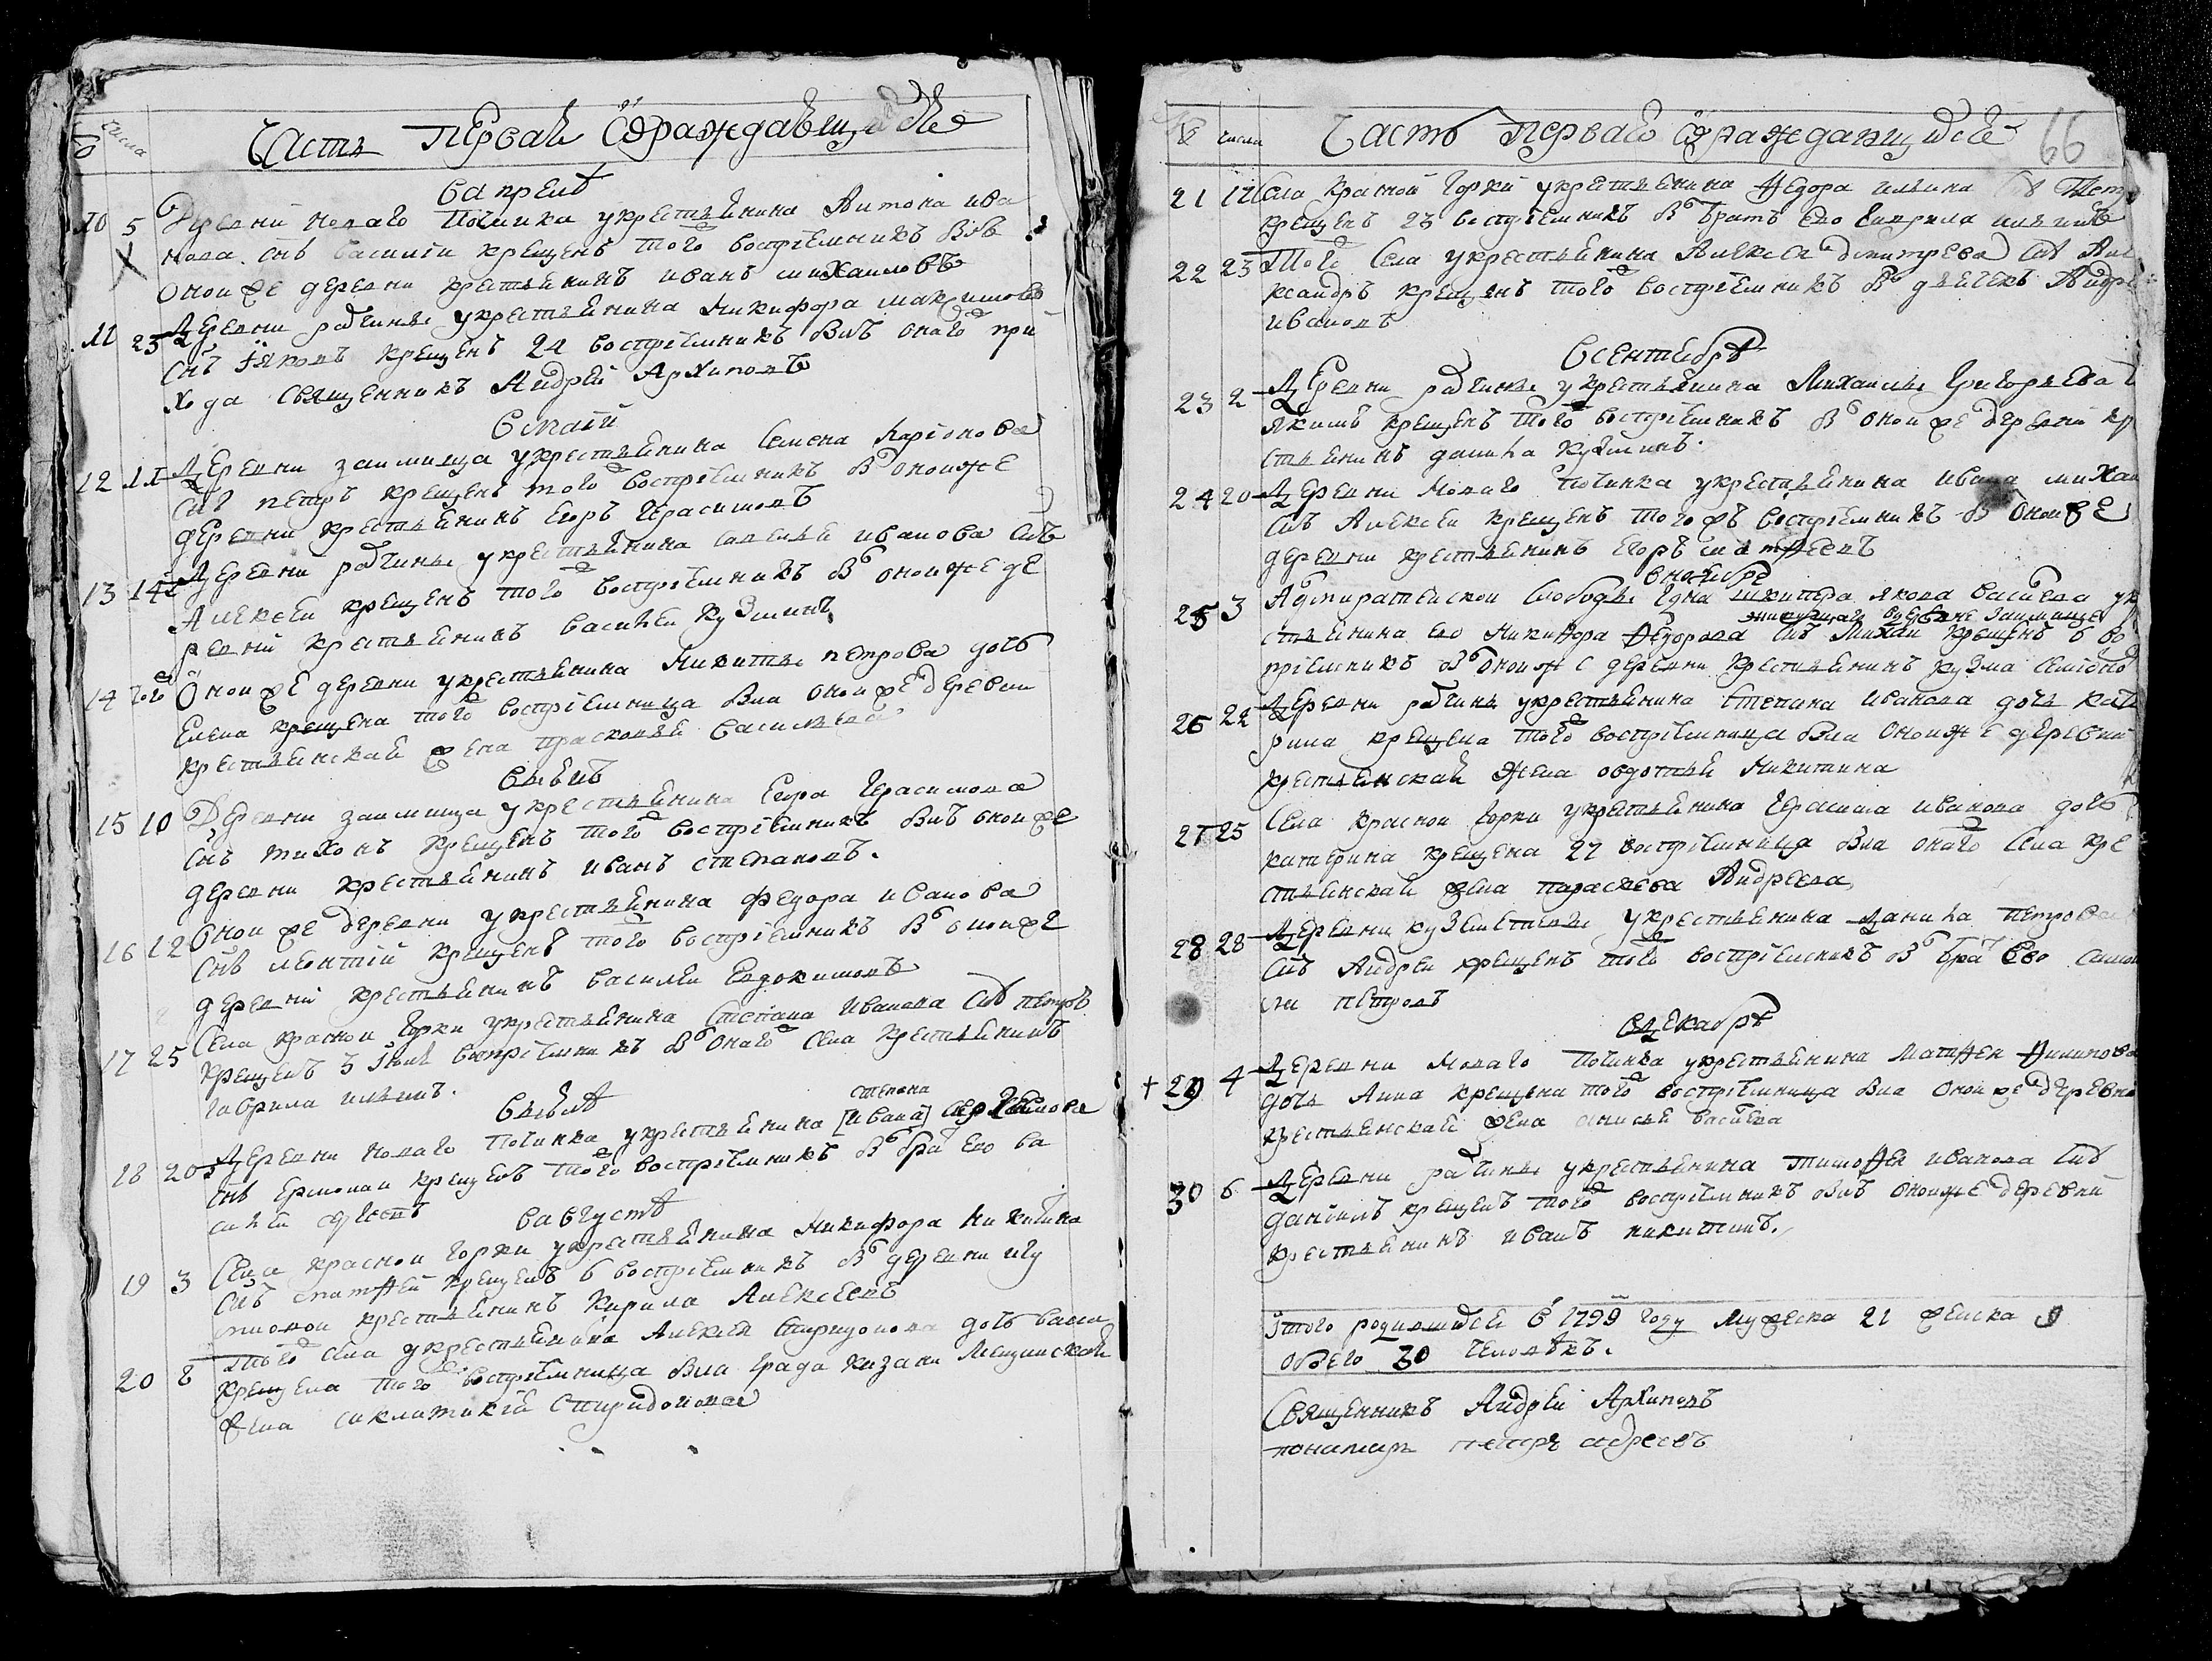 № числа Часть Первая О раждающихся
В апреле
10 5 Деревни Новаго Починка у крестьянина Антона Ива
нова снъ Василей крещенъ того воспрiемникъ былъ
оной же деревни крестьянинъ Иванъ Михаиловъ
11 23 Деревни у крестьянина Никифора Максимова
снъ Iяковъ крещенъ 24 воспрiемникъ былъ онаго при
хода священникъ Андрей Архиповъ
В маiи
12 11 Деревни Займища у крестьянина Семена Ларiонова
снъ Петръ крещенъ того воспрiемникъ б онойже
деревни крестьянинъ Егоръ Герасимовъ
13 14 Деревни у крестьянина Савелья Иванова снъ
Алексей крещенъ того воспрiемникъ бы онойже де
ревни крестьянинъ Василей Кузминъ
14 того Оной же деревни у крестьянина Никиты Петрова дочь
Елена крещена того воспрiемница была оной же деревни
крестьянская жена Прасковья Васильева
В iюне
15 10 Деревни Займища у крестьянина Егора Герасимова
снъ Тихонъ крещенъ того воспрiемникъ былъ оной же
деревни крестьянинъ Иванъ Степановъ.
16 12 Оной же деревни у крестьянина Федора Иванова
снъ Леонтiй крещенъ того воспрiемникъ бы оной же
деревни крестьянинъ Василей Евдокимовъ
17 25 Села Красной Горки у крестьянина Степана Иванова снъ Петръ
крещенъ 3 iюля воспрiемникъ бы онаго села крестьянинъ
Гаврила Ильинъ.
В iюле
18 20 Деревни Новаго Починка у крестьянина [Ивана] Степана
снъ Ермолай крещенъ того воспрiемникъ бы братъ ево Ва
силей
В августе
19 3 Села Красной Горки у крестьянина Никифора Никитина
снъ Матфей крещенъ 6 воспрiемникъ бы деревни Игу
мновой крестьянинъ Кирила Алексеевъ
20 8 Того села у крестьянина Алексея Спиридонова дочь Васи
крещена того воспрiемница была града Казани мещанская
жена Спиридонова
№ числа Часть Первая О раждающихся 66
21 17 Села Красной Горки у крестьянина Федора Ильина снъ Петръ
крещенъ 23 воспрiемникъ бы братъ ево Гаврила Ильинъ
22 23 Того села у крестьянина Алексея Дмитрева снъ Але
ксандръ крещенъ того воспрiемникъ бы дьячекъ Андрей
Ивановъ
В сентябре
23 2 Деревни у крестьянина Михаилы Григорьева
Якимъ крещенъ того воспрiемникъ бы оной же деревни кр
стьянинъ Данила Кузминъ.
24 20 Деревни Новаго Починка у крестьянина Ивана Михаи
снъ Алексей крещенъ того жъ воспрiемникъ бы оной же
деревни крестьянинъ Егоръ Матфеевъ
В ноябре
25 3 Адмиралтейской слободы гдна шкипера Якова Васильева у кр
живущаго в деревне Займище
стьянина ево Никифора Федорова снъ Михаи крещенъ 6 во
прiемникъ бы онойже деревни крестьянинъ Кузма Семiоно
26 22 Деревни у крестьянина Степана Иванова дочь Кате
рина крещена того воспрiемница была онойже деревни
крестьянская жена Овдотья Никитина
27 25 Села Красной Горки у крестьянина Герасима Иванова дочь
Катерина крещена 27 воспрiемница была онаго села кре
стьянская жена Параскева Андреева
28 28 Деревни у крестьянина Данила Петрова
снъ Андрей крещенъ того воспрiемникъ бы бра ево
Петровъ
В декабре
+ 29 4 Деревни Новаго Починка у крестьянина Матфея Филипова
дочь Анна крещена того воспрiемница была оной же деревни
крестьянская жена Анисья Васильева
30 6 Деревни у крестьянина Тимофея Иванова снъ
Данiилъ крещенъ того воспрiемникъ былъ онойже деревни
крестьянинъ Иванъ Никитинъ.
Итого родившихся в 1799 году мужеска 21 женска 9
обоего 30 человекъ.
Священникъ Андрей Архиповъ
понамарь Петръ Андреевъ